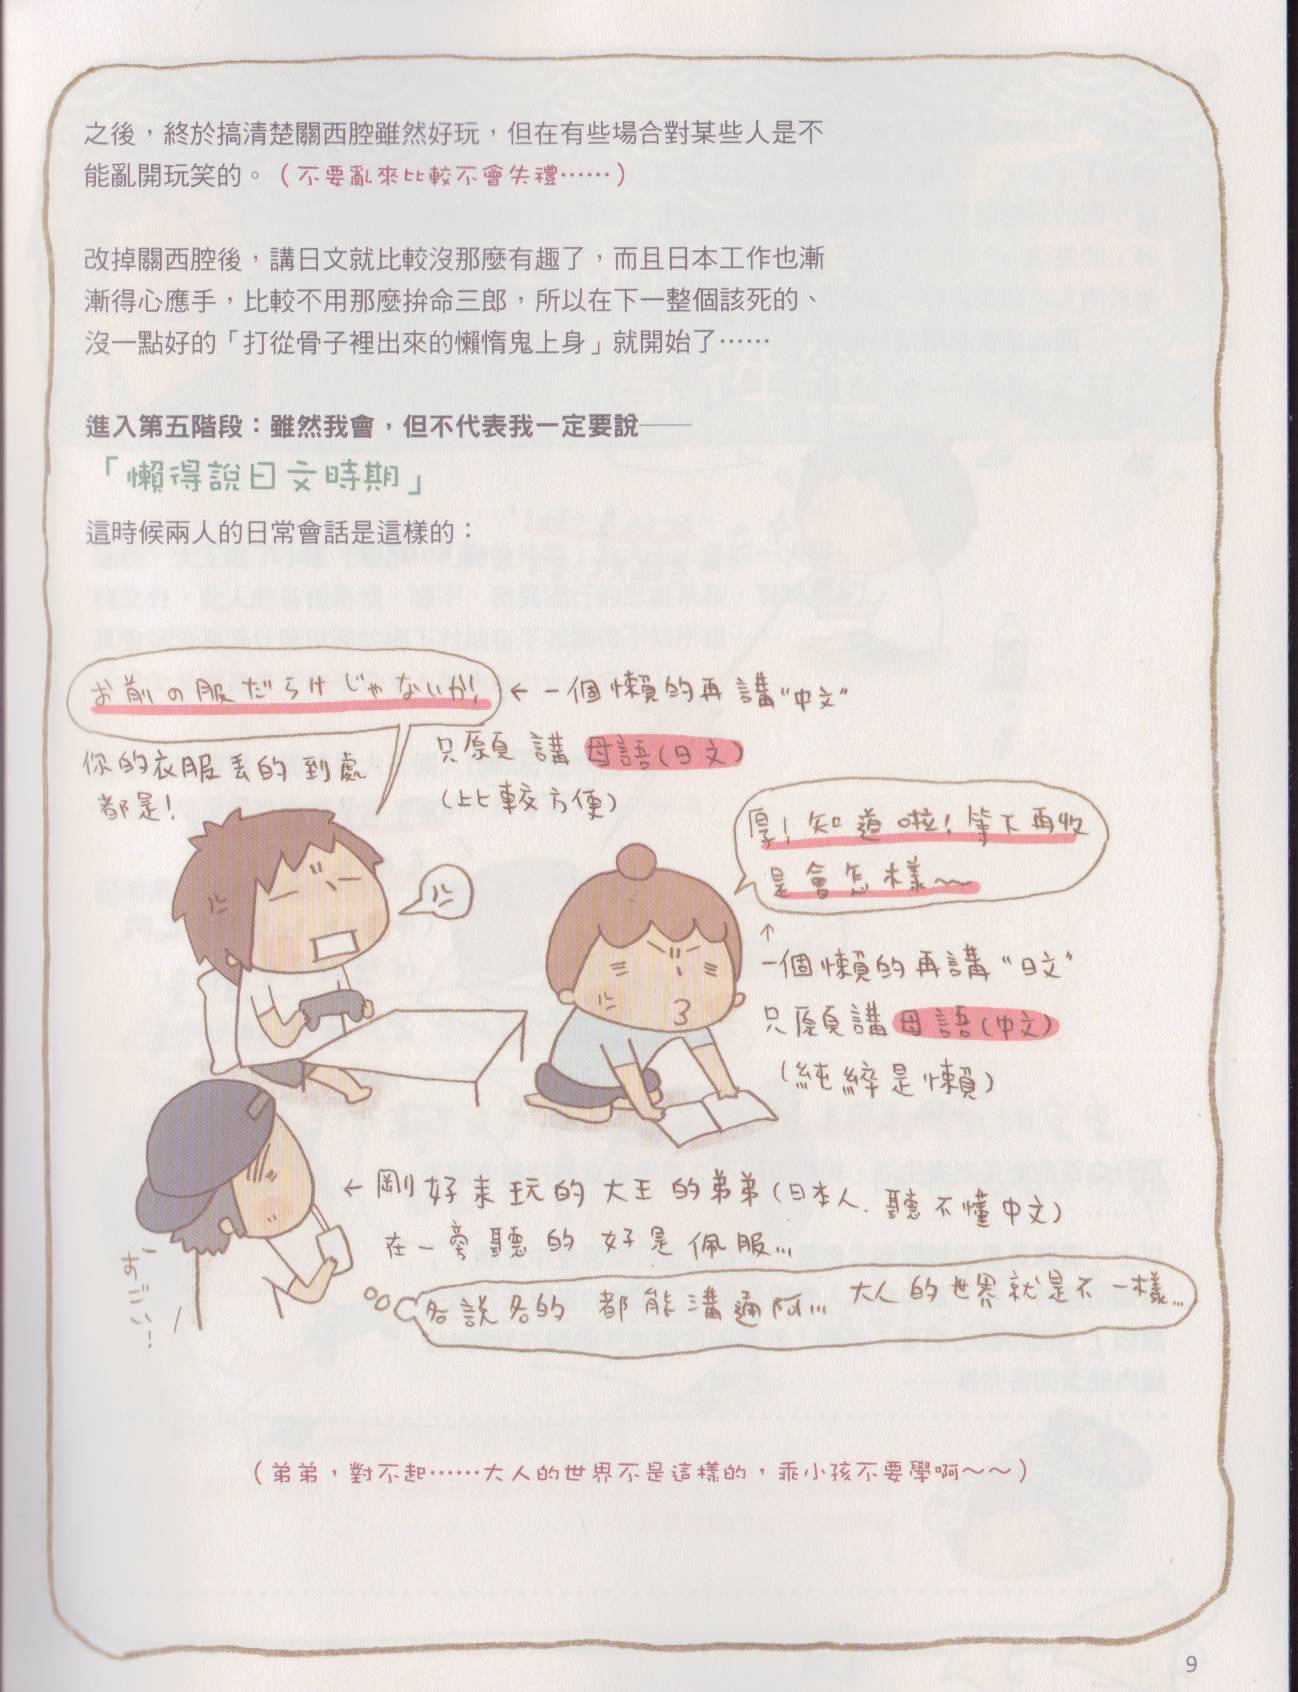 之後，終於搞清楚關西腔雖然好玩，但在有些場合對某些人是不
能亂開玩笑的。（不要亂來比較不會失禮……）
改掉關西腔後，講日文就比較沒那麼有趣了，而且日本工作也漸
漸得心應手，比較不用那麼拚命三郎，所以在下一整個該死的、
沒一點好的「打從骨子裡出來的懶惰鬼上身」就開始了……
進入第五階段：雖然我會，但不代表我一定要說——
「懶得說日文時期」
這時候兩人的日常會話是這樣的：
お前の服だらけじゃないか!
←一個懶的再講"中文"
只願講母語(日文)
(比較方便)
你的衣服丟的到處
都是!
厚!知道啦!等下再收
是會怎樣～
↑
一個懶的再講"日文"
只願講母語(中文)
(純綷是懶)
←剛好來玩的大王的弟弟(日本人.聽不懂中文)
在一旁聽的好是佩服...
すごい…!
各說各的 都能溝通阿... 大人的世界就是不一樣...
（弟弟，對不起……大人的世界不是這樣的，乖小孩不要學啊～～）
9